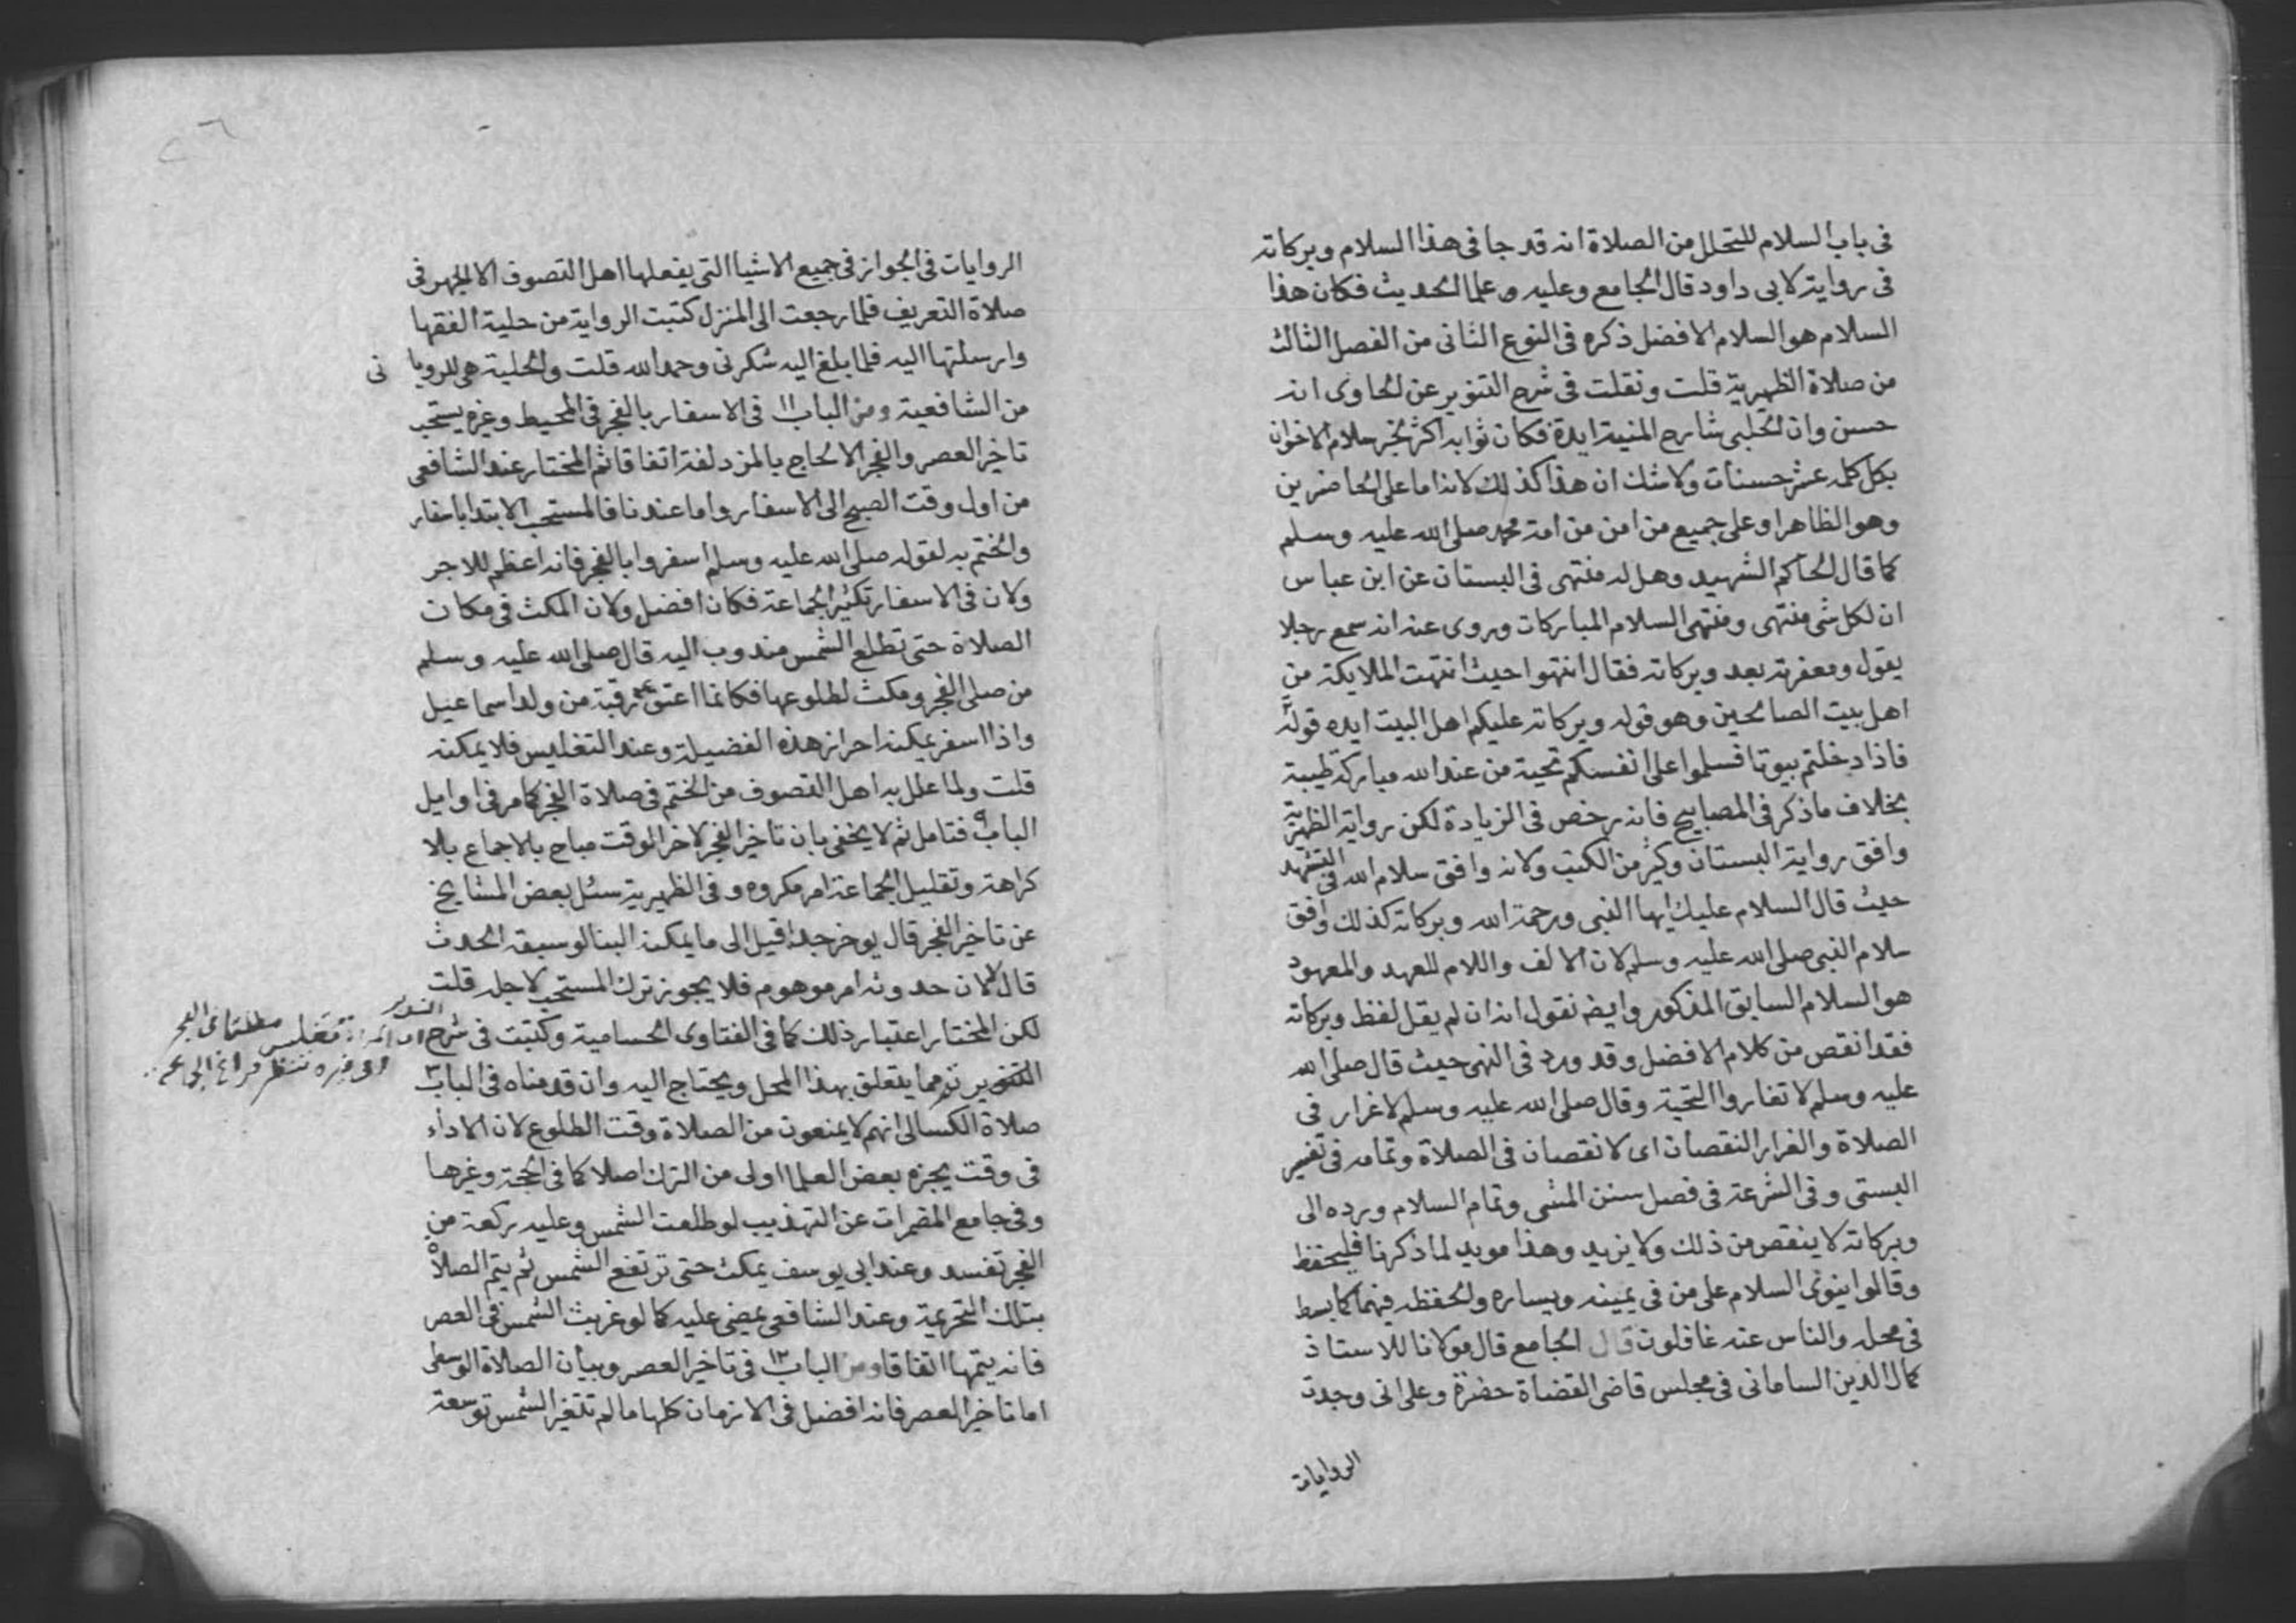 فى باب السلام للتحلل من الصلاة انه قد جا فى هذا السلام وبركاته
فى رواية لابى داود قال الجامع وعليه علما الحديث فكان هذا
السلام هو السلام الافضل ذكره فى النوع الثانى من الفصل الثالث
من صلاة الظهيرية قلت ونقلت فى شرح التنوير عن الحاوى انه
حسن وان الحلبى شارح المنية ايده فكان ثوابه اكثر بخبر سلام الاخوان
بكل كلمه عشر حسنات ولا شك ان هذا كذلك لانه اما على الحاضرين
وهو الظاهر او على جميع من امن من امة محمد صلى الله عليه وسلم
كما قال الحاكم الشهيد وهل له منتهى فى البستان عن ابن عباس
ان لكل شى منتهى ومنتهى السلام المباركات وروى عنه انه سمع رجلا
يقول ومغفرته بعد وبركاته فقال انتهوا حيث انتهت الملايكة من
اهل بيت الصالحين وهو قوله وبركاته عليكم اهل البيت ايده قوله
فاذا دخلتم بيوتا فسلموا على انفسكم تحية من عند الله مباركة طيبة
بخلاف ما ذكر فى المصابيح فانه رخص فى الزيادة لكن رواية الظهيرية
وافق رواية البستان وكثير من الكتب ولانه وافق سلام الله فى التشهد
حيث قال السلام عليك ايها النبى ورحمة الله وبركاته كذلك وافق
سلام النبى صلى الله عليه وسلم لان الالف واللام للعهد والمعهود
هو السلام السابق المذكور وايضه نقول انه ان لم يقل لفظ وبركاته
فقد انقص من كلام الافضل وقد ورد فى النهى حيث قال صلى الله
عليه وسلم لا تغاروا التحية وقال صلى الله عليه وسلم لا غرار فى
الصلاة والغرار النقصان اى لا نقصان فى الصلاة وتمامه فى تفسير
البستى وفى الشرعة فى فصل سنن المشى وتمام السلام ورده الى
وبركاته لا ينقص من ذلك ولا يزيد وهذا مويد لما ذكرنا فليحفظ
وقالوا ينوى السلام على من فى يمينه ويساره والحفظه فيهما كما بسط
فى محله والناس عنه غافلون قال الجامع قال مولانا للاستاذ
كمال الدين السامانى فى مجلس قاضى القضاة حضرة وعلى انى وجدت
الروايات
الروايات فى الجواز فى جميع الاشيا التى يفعلها اهل التصوف الا الجهر فى
صلاة التعريف فلما رجعت الى المنزل كتبت الرواية من حلية الفقها
وارسلتها اليه فلما بلغ اليه شكرنى وحمد الله قلت والحلية هى للرويانى
من الشافعية ومن الباب ١١ فى الاسفار بالفجر فى المحيط وغيره يستحب
تاخير العصر والفجر الا لحاج بالمزدلفة اتفاقا ثم المختار عند الشافعى
من اول وقت الصبح الى الاسفار واما عندنا فالمستحب الابتدا باسفار
والختم به لقوله صلى الله عليه وسلم اسفروا بالفجر فانه اعظم للاجر
ولان فى الاسفار تكثير الجماعة فكان افضل ولان المكث فى مكان
الصلاة حتى تطلع الشمس مندوب اليه قال صلى الله عليه وسلم
من صلى الفجر ومكث لطلوعها فكانما اعتق رقبة من ولد اسماعيل
واذا اسفر يمكنه احراز هذه الفضيلة وعند التغليس فلا يمكنه
قلت ولما علل به اهل التصوف من الختم فى صلاة الفجر كما مر فى اوايل
الباب ٩ فتامل ثم لا يخفى بان تاخير الفجر لاخر الوقت مباح بالاجماع بلا
كراهة وتقليل الجماعة امر مكروه وفى الظهيرية سئل بعض المشايخ
عن تاخير الفجر قال يوخر جدا قيل الى ما يمكنه البنا لو سبقه الحدث
قال لا لان حدوثه امر موهوم فلا يجوز ترك المستحب لاجله قلت
لكن المختار اعتبار ذلك كما فى الفتاوى الحسامية وكتبت فى شرح
التنوير ثم مما يتعلق بهذا المحل ويحتاج اليه وان قدمناه فى الباب ٣
صلاة الكسالى انهم لا يمنعون من الصلاة وقت الطلوع لان الاداء
فى وقت يجزه بعض العلما اولى من الترك اصلا كما فى الحجة وغيرها
وفى جامع المضمرات عن التهذيب لو طلعت الشمس وعليه ركعة من
الفجر تفسد وعند ابى يوسف يمكث حتى ترتفع الشمس ثم يتم الصلاة
بتلك التحريمة وعند الشافعى يمضى عليه كما لو غربت الشمس فى العصر
فانه يتمها اتفاقا ومن الباب ١٢ فى تاخير العصر وبيان الصلاة الوسطى
اما تاخير العصر فانه افضل فى الازمان كلها ما لم تتغير الشمس توسعة
ان المراة تغلس مطلقا فى الفجر
وفى غيره تنتظر فراغ الجماعة